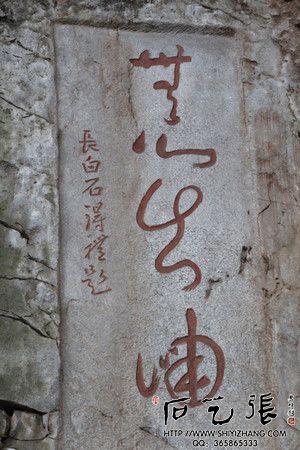 無心出岫
長白石淂禮題
石艺張
HTTP://WWW.SHIYIZHANG.COM
QQ: 365865333